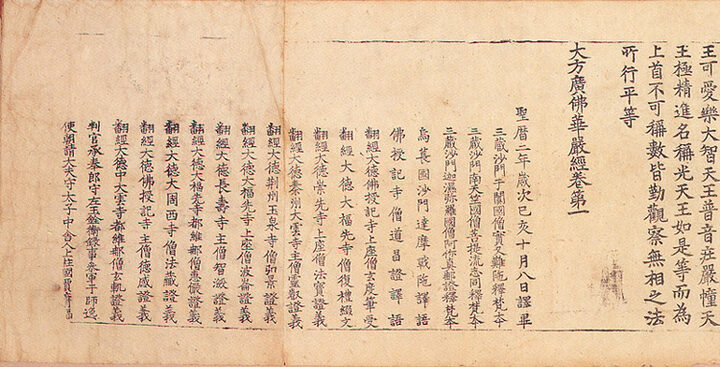 王可愛樂大智天王普音莊嚴幢天
王極精進名稱光天王如是等而為
上首不可稱數皆勤觀察無相之法
所行平等
大方廣佛華嚴經卷第一
聖曆二年歲次己亥十月八日譯畢
三藏沙門于闐國僧實叉難陁釋梵本
三藏沙門南天竺國僧菩提流志同釋梵本
三藏沙門迦濕弥羅國僧阿你真那證釋梵本
烏萇國沙門達摩戰陁譯語
佛授記寺僧道昌證譯語
翻經大德佛授記寺上座僧玄度筆受
翻經大德大福先寺僧復禮綴文
翻經大德崇先寺上座僧法寶證義
翻經大德秦州大雲寺主僧靈叡證義
翻經大德荊州玉泉寺僧弘景證義
翻經大德大福先寺上座僧波崙證義
翻經大德長壽寺主僧智激證義
翻經大德大福先寺都維那僧惠儼證義
翻經大德大周西寺僧法藏證義
翻經大德佛授記寺主僧德感證義
翻經大德中大雲寺都維那僧玄軌證義
判官承奉郎守左玉鈐衛錄事參軍于師逸
使朝請大夫守太子中舍人上柱國賈膺福